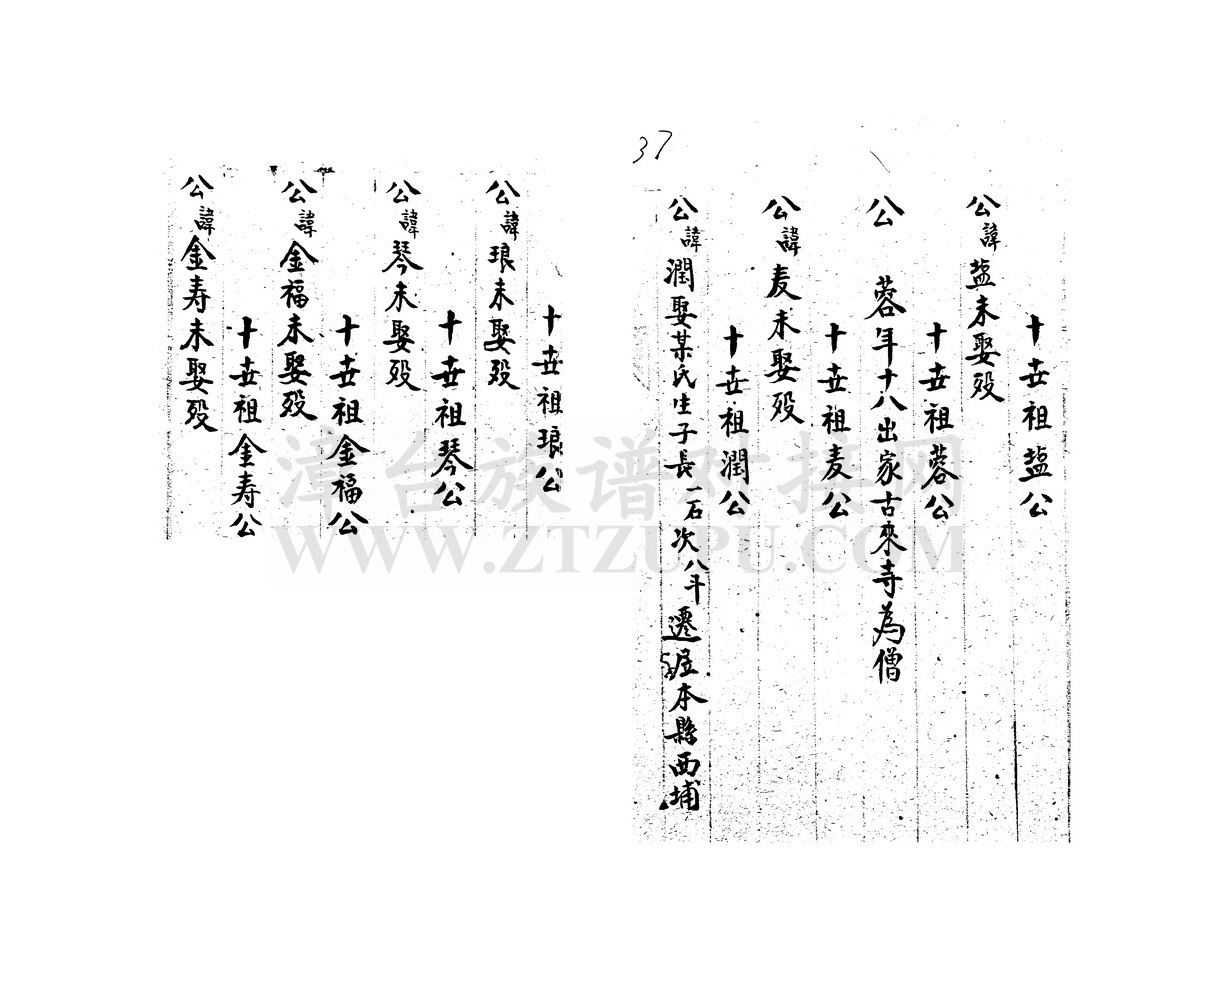 37
十世祖塩公
公諱塩未娶殁
十世祖蓉公
公 蓉年十八出家古來寺為僧
十世祖麦公
公諱麦未娶殁
十世祖潤公
公諱潤娶某氏生子長一石次八斗遷居本縣西埔
十世祖琅公
公諱琅未娶殁
十世祖琴公
公諱琴未娶殁
十世祖金福公
公諱金福未娶殁
十世祖金寿公
公諱金寿未娶殁
漳台族谱对接网
WWW.ZTZUPU.COM